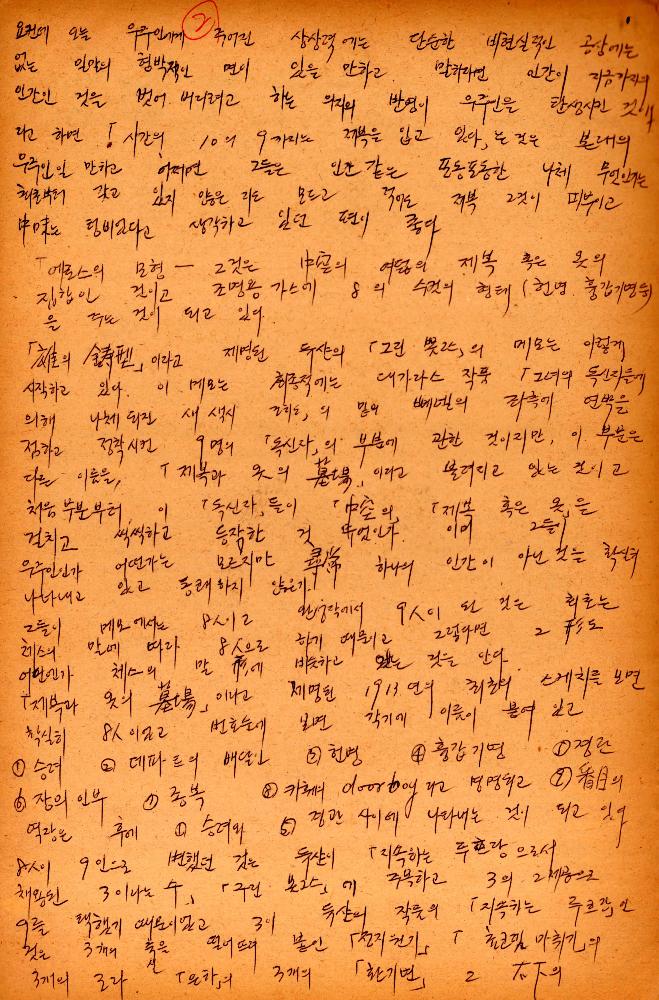 ②
요컨데 오늘 우주인에게 주어진 상상력에는 단순한 비현실적인 공상에는
없는 일말의 협박적인 면이 있을 만하고 말하자면 인간이 지금까지의
인간인 것을 벗어 버리려고 하는 의지의 반영이 우주인을 탄생시킨 것이
라고 하면 「시간의 10의 9가지는 제복을 입고 있다」는 것은 본래의
우주인일 만하고 어쩌면 그들은 인간같은 포동포동한 나체 무엇인가는
최초부터 갖고 있지 않은 지도 모르고 제복 그것이 피부이고
中味는 텅비었다고 생각하고 있던 편이 좋다
「에로스의 모형 — 그것은 中空의 여덟의 제복 혹은 옷의
집합인 것이고 조명용 가스에 8의 수컷의 형태 (헌병, 흉갑기병 등)
을 주는 것이 되고 있다
「雄의 鋳型」이라고 제명된 독샹의 「그린 봇크스」의 메모는 이렇게
시작하고 있다. 이 메모는 최종적에는 대가라스 작품 「그녀의 독신자들에
의해 나체 되진 새 색시 조차도」의 밑의 빠넬의 좌측에 연박을
점하고 정착시킨 9명의 「독신자」의 부분에 관한 것이지만, 이 부분은
다른 이름을, 「제복과 옷의 墓場」이라고 불려지고 있는 것이고
처음 부분부터 이 「독신자」들이 「中空의」 「제복 혹은 옷」을
걸치고 씩씩하고 등장한 것 무엇인가. 이미 그들이
우주인인가 어떤가는 모르지만 尋常 하나의 인간이 아닌 것은 확실히
나타내고 있고 동래하지 않은가.
그들이 메모에서는 8人이고 완성작에서 9人이 된 것은 최초는
체스의 말에 따라 8人으로 하게 때문이고 그렇다면 그 形도
어딘인가 체스의 말 形에 비슷하고 있는 것을 안다.
「제복과 옷의 墓場」이라고 제명된 1913년의 최초의 스케치를 보면
착실히 8人이었고 번호순에 보면 각기에 이름이 붙여 있고
① 승려 ② 데파트의 배달인 ③ 헌병 ④ 흉갑기병 ⑤ 경관
⑥ 장의 인부 ⑦ 종복 ⑧ 카페의 doorboy라고 명명되고 ⑨ 番目의
역장은 후에 ① 승려와 ⑤ 경관 사이에 나타내는 것이 되고 있다
8人이 9인으로 변했던 것은 독샹이 「지속하는 후렴구」으로서
채용된 3이라는 수, 「그린 본크스」에 주목하고 3의 2제곱으로
9를 택했기 때문이었고 3이 독샹의 작품의 「지속하는 후크랑」인
것은 3개의 축을 떨어뜨려 붙인 「정지원기」 「쵸코렛 마쇄기」의
3개의 로라 「은하」의 3개의 「환기면」 그 右下의